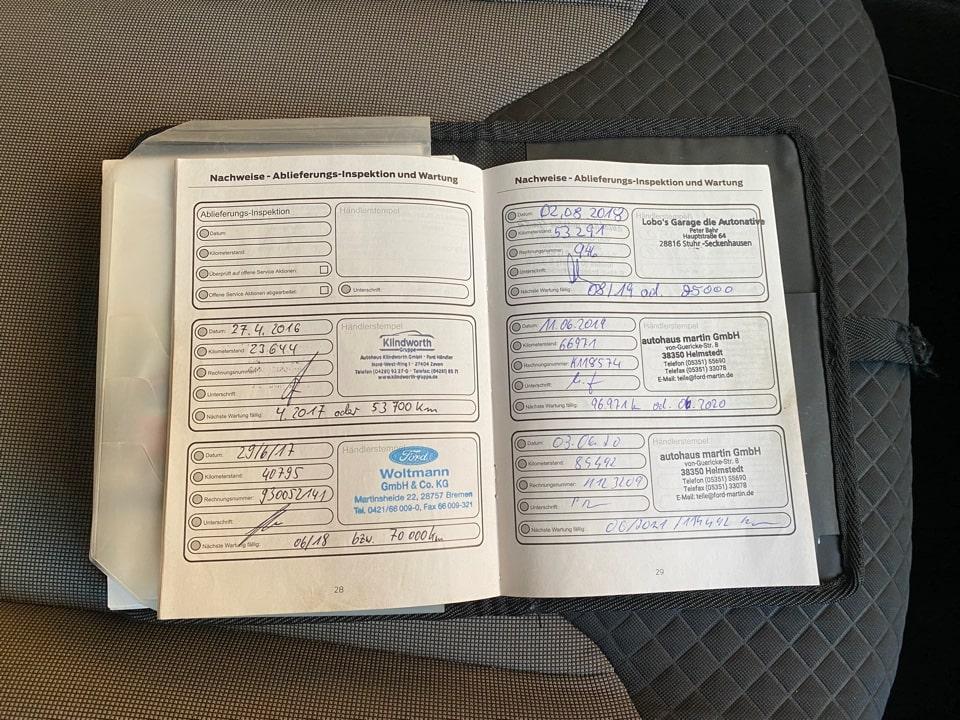 Nachweise - Ablieferungs-Inspektion und Wartung
Ablieferungs-Inspektion
Händlerstempel
Datum:
Kilometerstand:
Überprüft auf offene Service Aktionen:
Offene Service Aktionen abgearbeitet:
Unterschrift:
Datum: 27.4.2016
Kilometerstand: 23644
Rechnungsnummer:
Unterschrift:
Nächste Wartung fällig: 4.2017 oder 53 700 km
Händlerstempel
Klindworth
Gruppe
Autohaus Klindworth GmbH · Ford Händler
Nord-West-Ring 1 · 27404 Zeven
www.klindworth-gruppe.de
Datum: 29/6/17
Kilometerstand: 40795
Rechnungsnummer: 930052141
Unterschrift:
Nächste Wartung fällig: 06/18 bzw. 70 000km
Händlerstempel
Ford
Woltmann
GmbH & Co. KG
Martinsheide 22, 28757 Bremen
Tel. 0421/66 009-0, Fax 66 009-321
28
Nachweise - Ablieferungs-Inspektion und Wartung
Datum: 02.08.2018
Kilometerstand: 53291
Rechnungsnummer: 946
Unterschrift:
Nächste Wartung fällig: 08/19 od.
Händlerstempel
Lobo's Garage die Autonative
Peter Bahr
Hauptstraße 64
28816 Stuhr-Seckenhausen
Datum: 11.06.2019
Kilometerstand: 66971
Rechnungsnummer: K118574
Unterschrift:
Nächste Wartung fällig: 96.971 k od. 06.2020
Händlerstempel
autohaus martin GmbH
von-Guericke-Str. 8
38350 Helmstedt
Telefon (05351) 55690
Telefax (05351) 33078
E-Mail: teile@ford-martin.de
Datum: 03.06.20
Kilometerstand: 85492
Rechnungsnummer: 1123209
Unterschrift:
Nächste Wartung fällig: 06/2021 /
Händlerstempel
autohaus martin GmbH
von-Guericke-Str. 8
38350 Helmstedt
Telefon (05351) 55690
Telefax (05351) 33078
E-Mail: teile@ford-martin.de
29